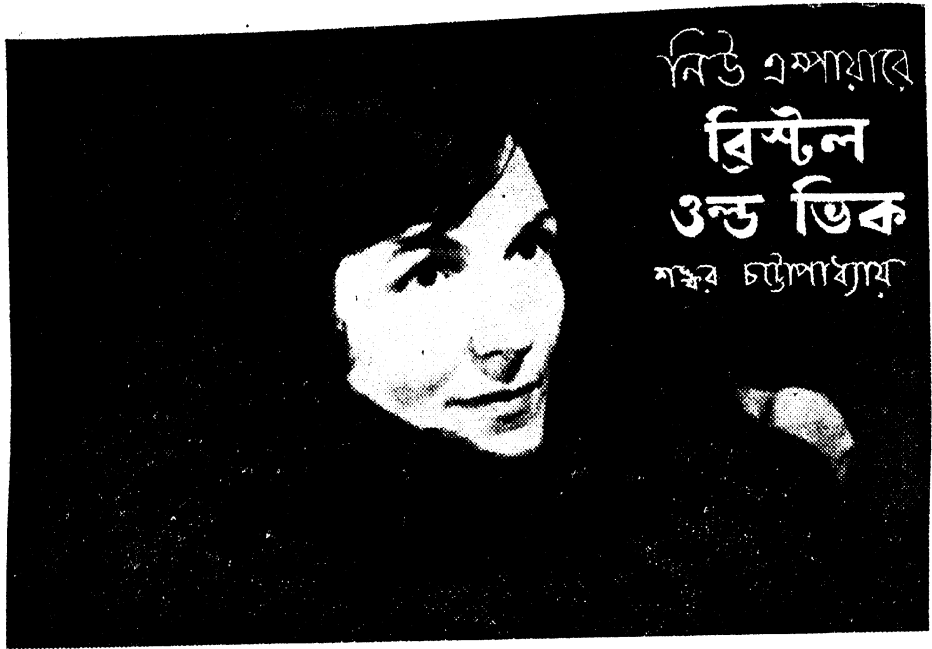 নিউ এম্পায়ারে
ব্রিস্টল
ওল্ড ভিক
শঙ্কর চট্টোপাধ্যায়